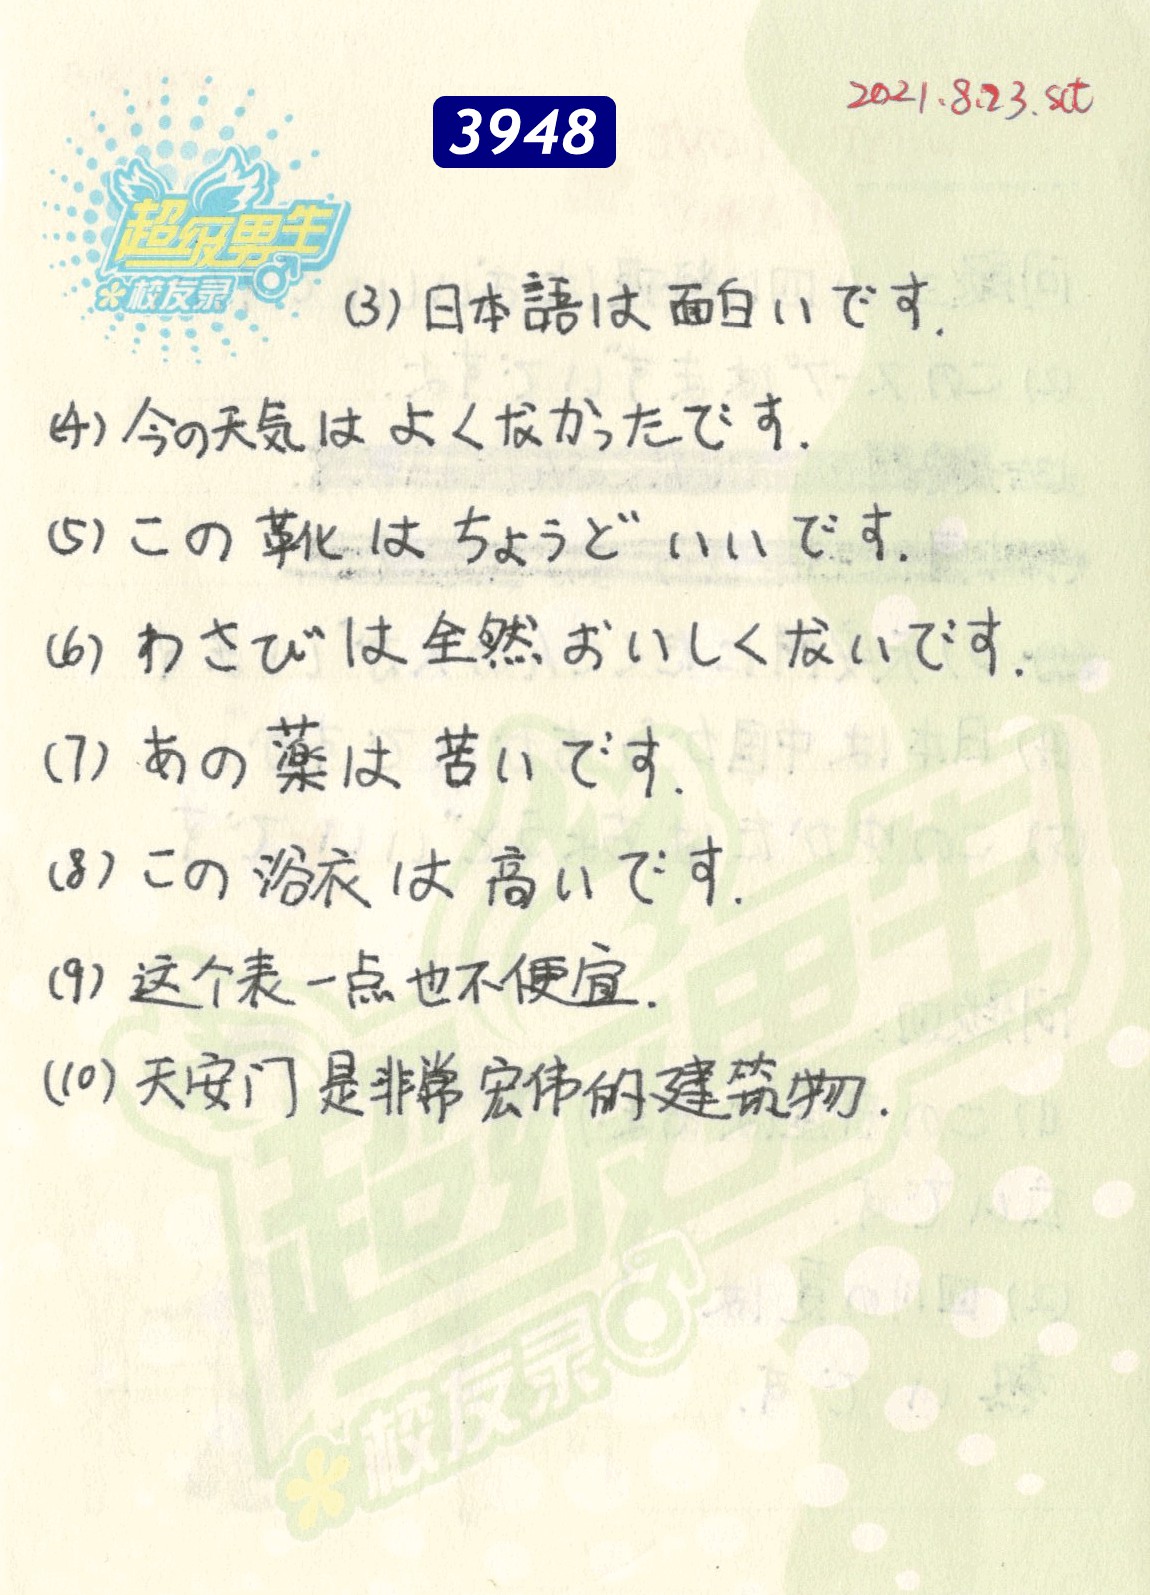 2021.8.23.sct
3948
超级男生
校友录
(3) 日本語は 面白いです.
(4) 今の天気は よくなかったです.
(5) この 靴は ちょうど いいです.
(6) わさびは 全然 おいしくないです.
(7) あの 薬は 苦いです.
(8) この 浴衣は 高いです.
(9) 这个表一点也不便宜.
(10) 天安门 是非常 宏伟的建筑物.
超级男生
校友录